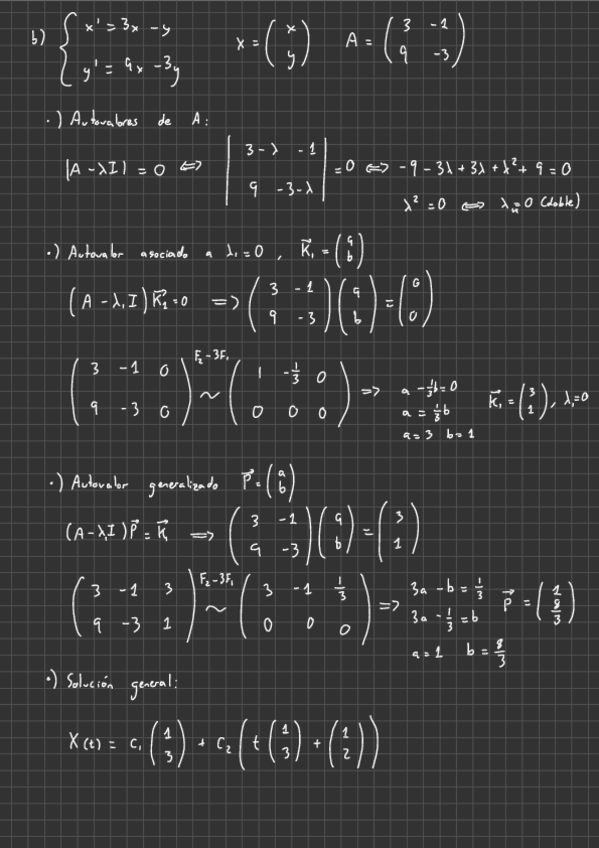 b) { x' = 3x - y    X = ( x ; y )    A = ( 3 -1 ; 9 -3 )
y' = 9x - 3y
·) Autovalores de A:
|A - λI| = 0 ⇔ | 3-λ -1 ; 9 -3-λ | = 0 ⇔ -9 - 3λ + 3λ + λ² + 9 = 0
λ² = 0 ⇔ λ = 0 (doble)
·) Autovalor asociado a λ₁ = 0 , K⃗₁ = ( a ; b )
(A - λ₁I) K⃗₁ = 0 ⇒ ( 3 -1 ; 9 -3 ) ( a ; b ) = ( 0 ; 0 )
( 3 -1 0 ; 9 -3 0 ) F₂-3F₁ ~ ( 1 -1/3 0 ; 0 0 0 ) ⇒ a - 1/3b = 0    K⃗₁ = ( 3 ; 1 ), λ₁=0
a = 1/3 b
a = 3 b = 1
·) Autovalor generalizado P⃗ = ( a ; b )
(A - λ₁I) P⃗ = K⃗₁ ⇒ ( 3 -1 ; 9 -3 ) ( a ; b ) = ( 3 ; 1 )
( 3 -1 3 ; 9 -3 1 ) F₂-3F₁ ~ ( 3 -1 1/3 ; 0 0 0 ) ⇒ 3a - b = 1/3    P⃗ = ( 1 ; 8/3 )
3a - 1/3 = b
a = 1 b = 8/3
·) Solución general:
X(t) = C₁ ( 1 ; 3 ) + C₂ ( t ( 1 ; 3 ) + ( 1 ; 2 ) )